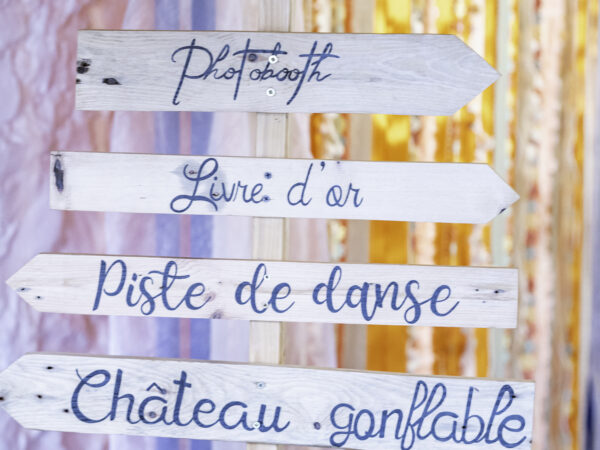 Photobooth
Livre d'or
Piste de danse
Château gonflable